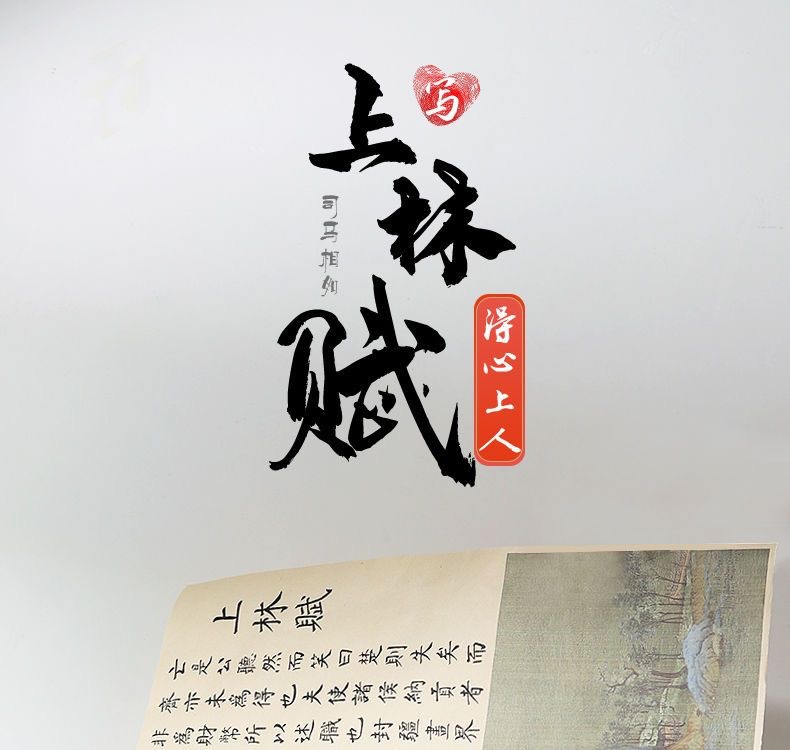 写
上林赋
司马相如
得心上人
上林賦
亡是公聽然而笑曰楚則失矣而
齊亦未為得也夫使諸候納貢者
非為財幣所以述職也封疆畫界